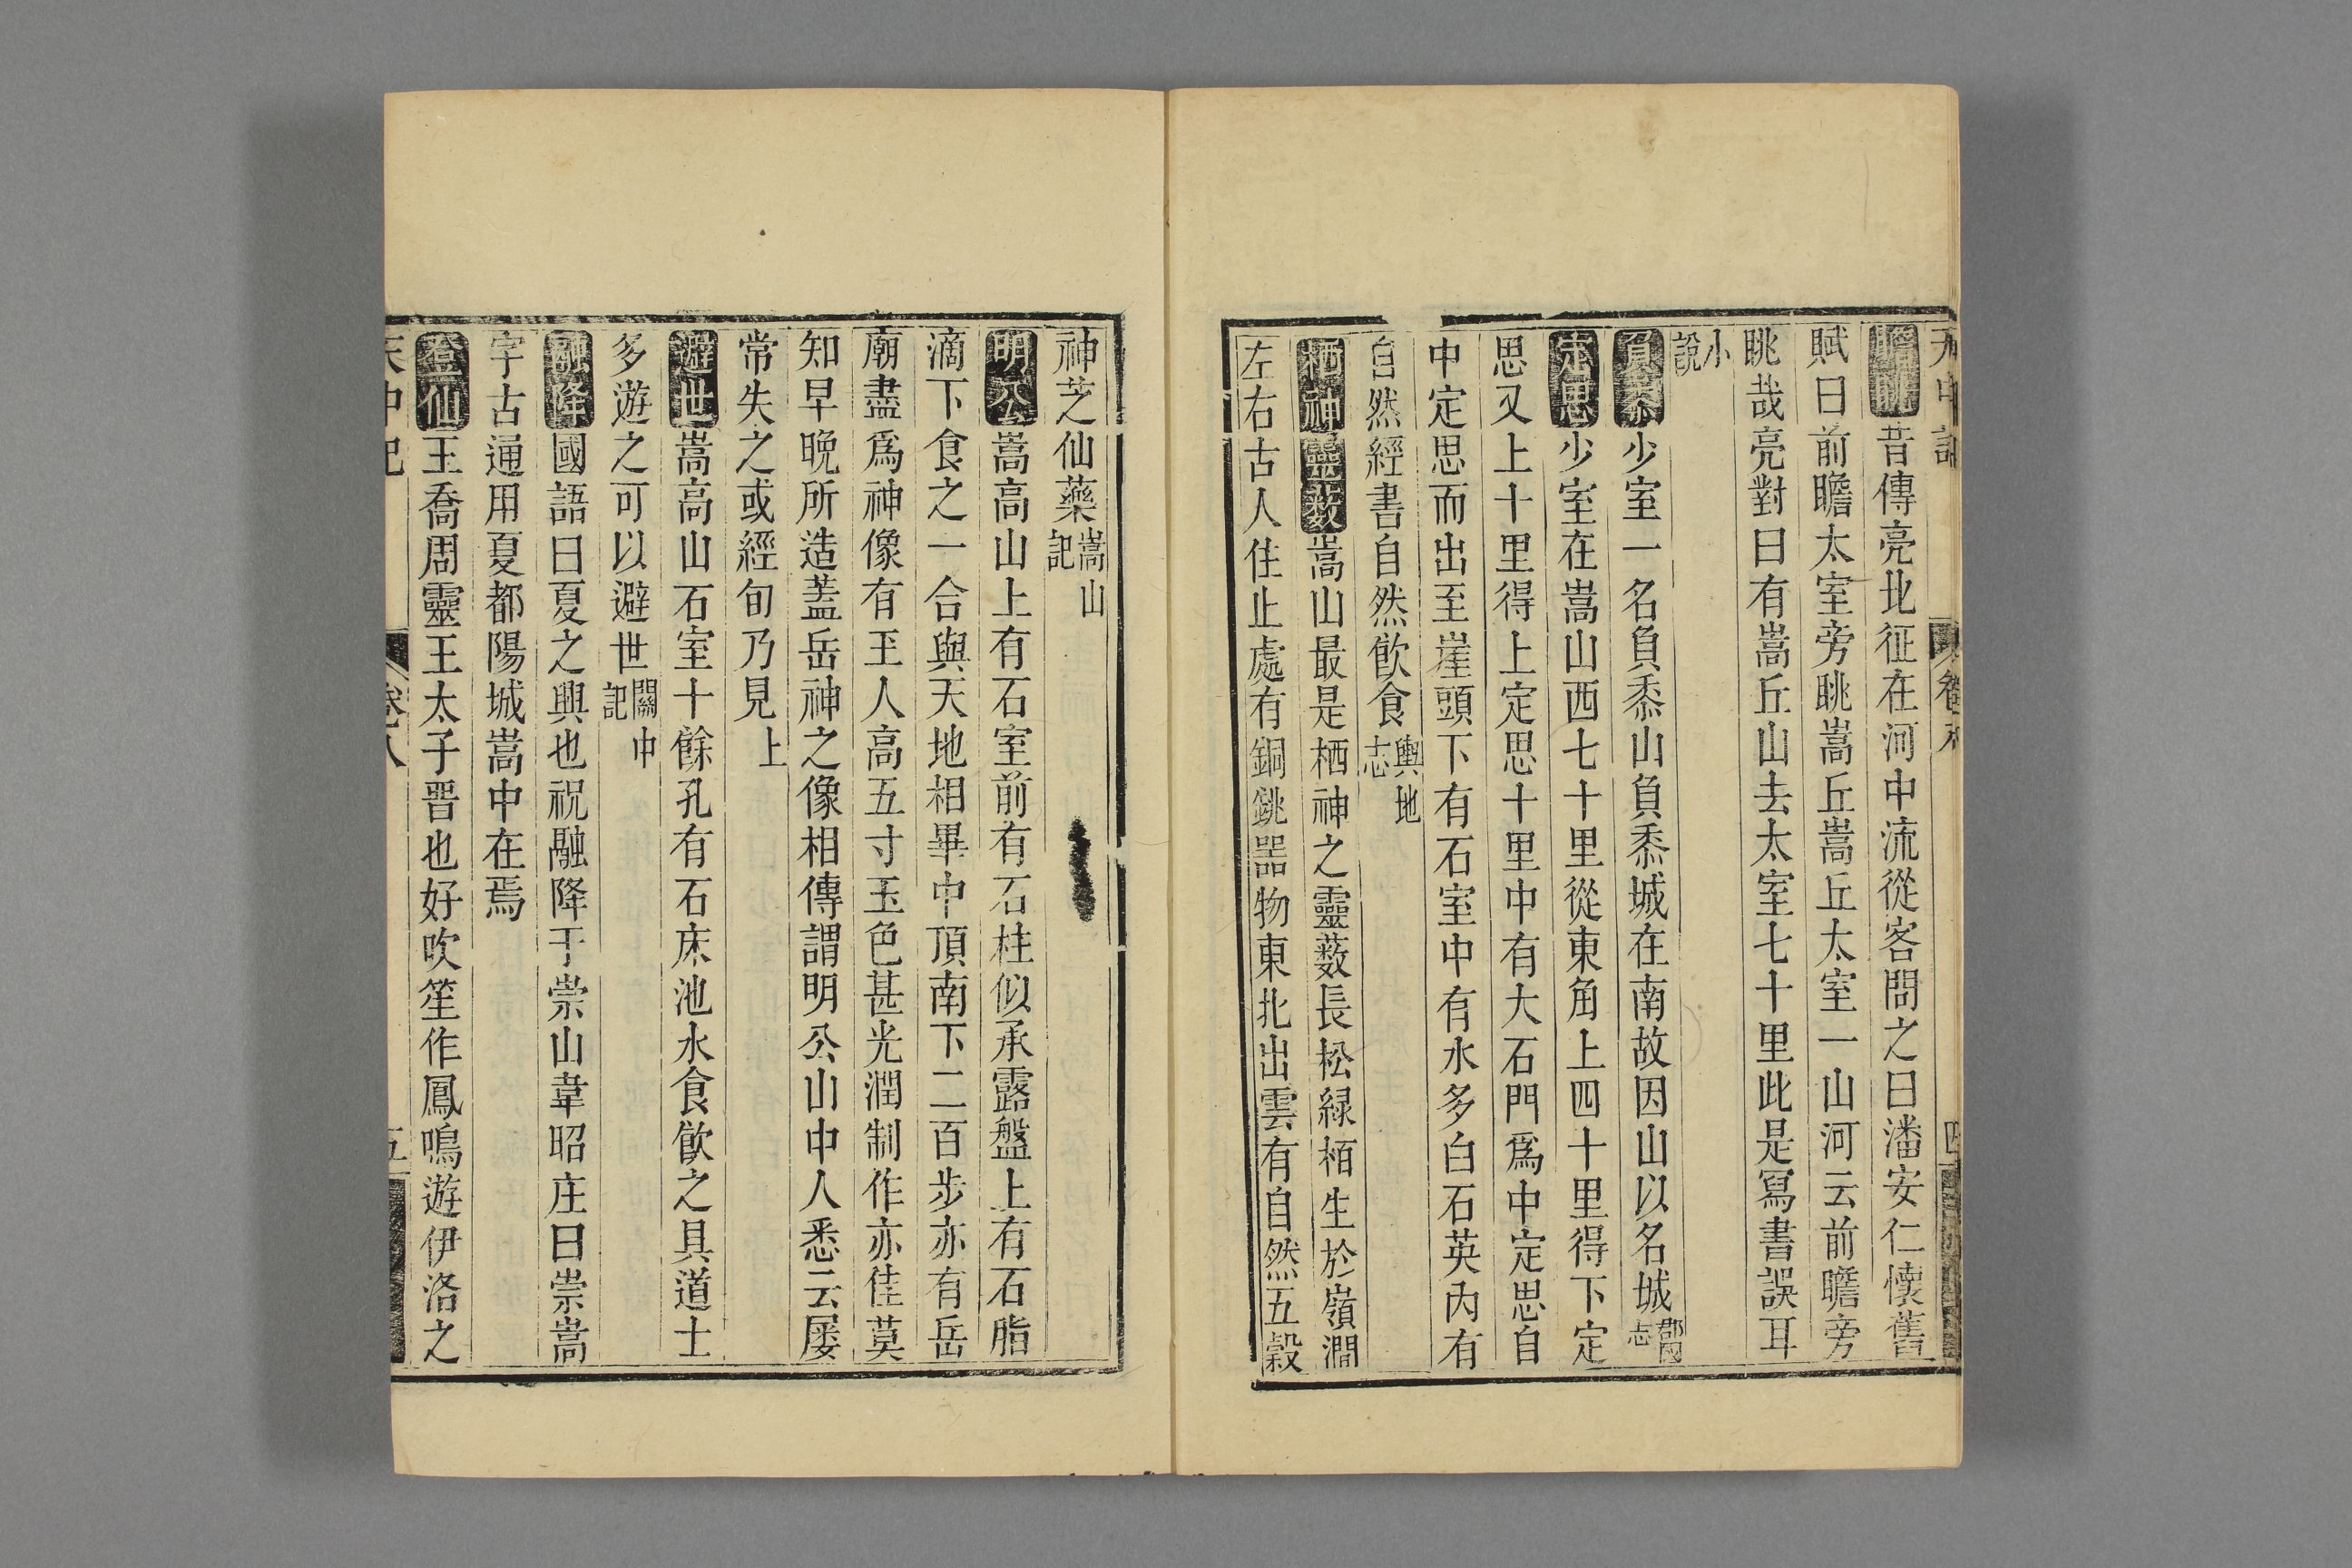 天中記 卷八 四
瞻眺昔傳亮北征在河中流從客問之曰潘安仁懐舊
賦曰前瞻太室旁眺嵩丘嵩丘太室一山河云前瞻旁
眺哉亮對曰有嵩丘山去太室七十里此是寫書誤耳
小說
負黍少室一名負黍山負黍城在南故因山以名城郡國志
定思少室在嵩山西七十里從東角上四十里得下定
思又上十里得上定思十里中有大石門爲中定思自
中定思而出至崖頭下有石室中有水多白石英内有
自然經書自然飮食輿地志
栖神靈薮嵩山最是栖神之靈薮長松緑栢生於嶺澗
左右古人住止處有銅銚器物東北出雲有自然五穀
神芝仙藥嵩山記
明公嵩高山上有石室前有石柱似承露盤上有石脂
滴下食之一合與天地相畢中頂南下二百步亦有岳
廟盡爲神像有王人高五寸玉色甚光潤制作亦佳莫
知早晚所造蓋岳神之像相傳謂明公山中人悉云屡
常失之或經旬乃見上
避世嵩高山石室十餘孔有石床池水食飮之具道士
多遊之可以避世關中記
融降國語曰夏之興也祝融降于崇山韋昭庄曰崇嵩
字古通用夏都陽城嵩中在焉
登仙王喬周靈王太子晋也好吹笙作鳳鳴遊伊洛之
天中記 卷八 五